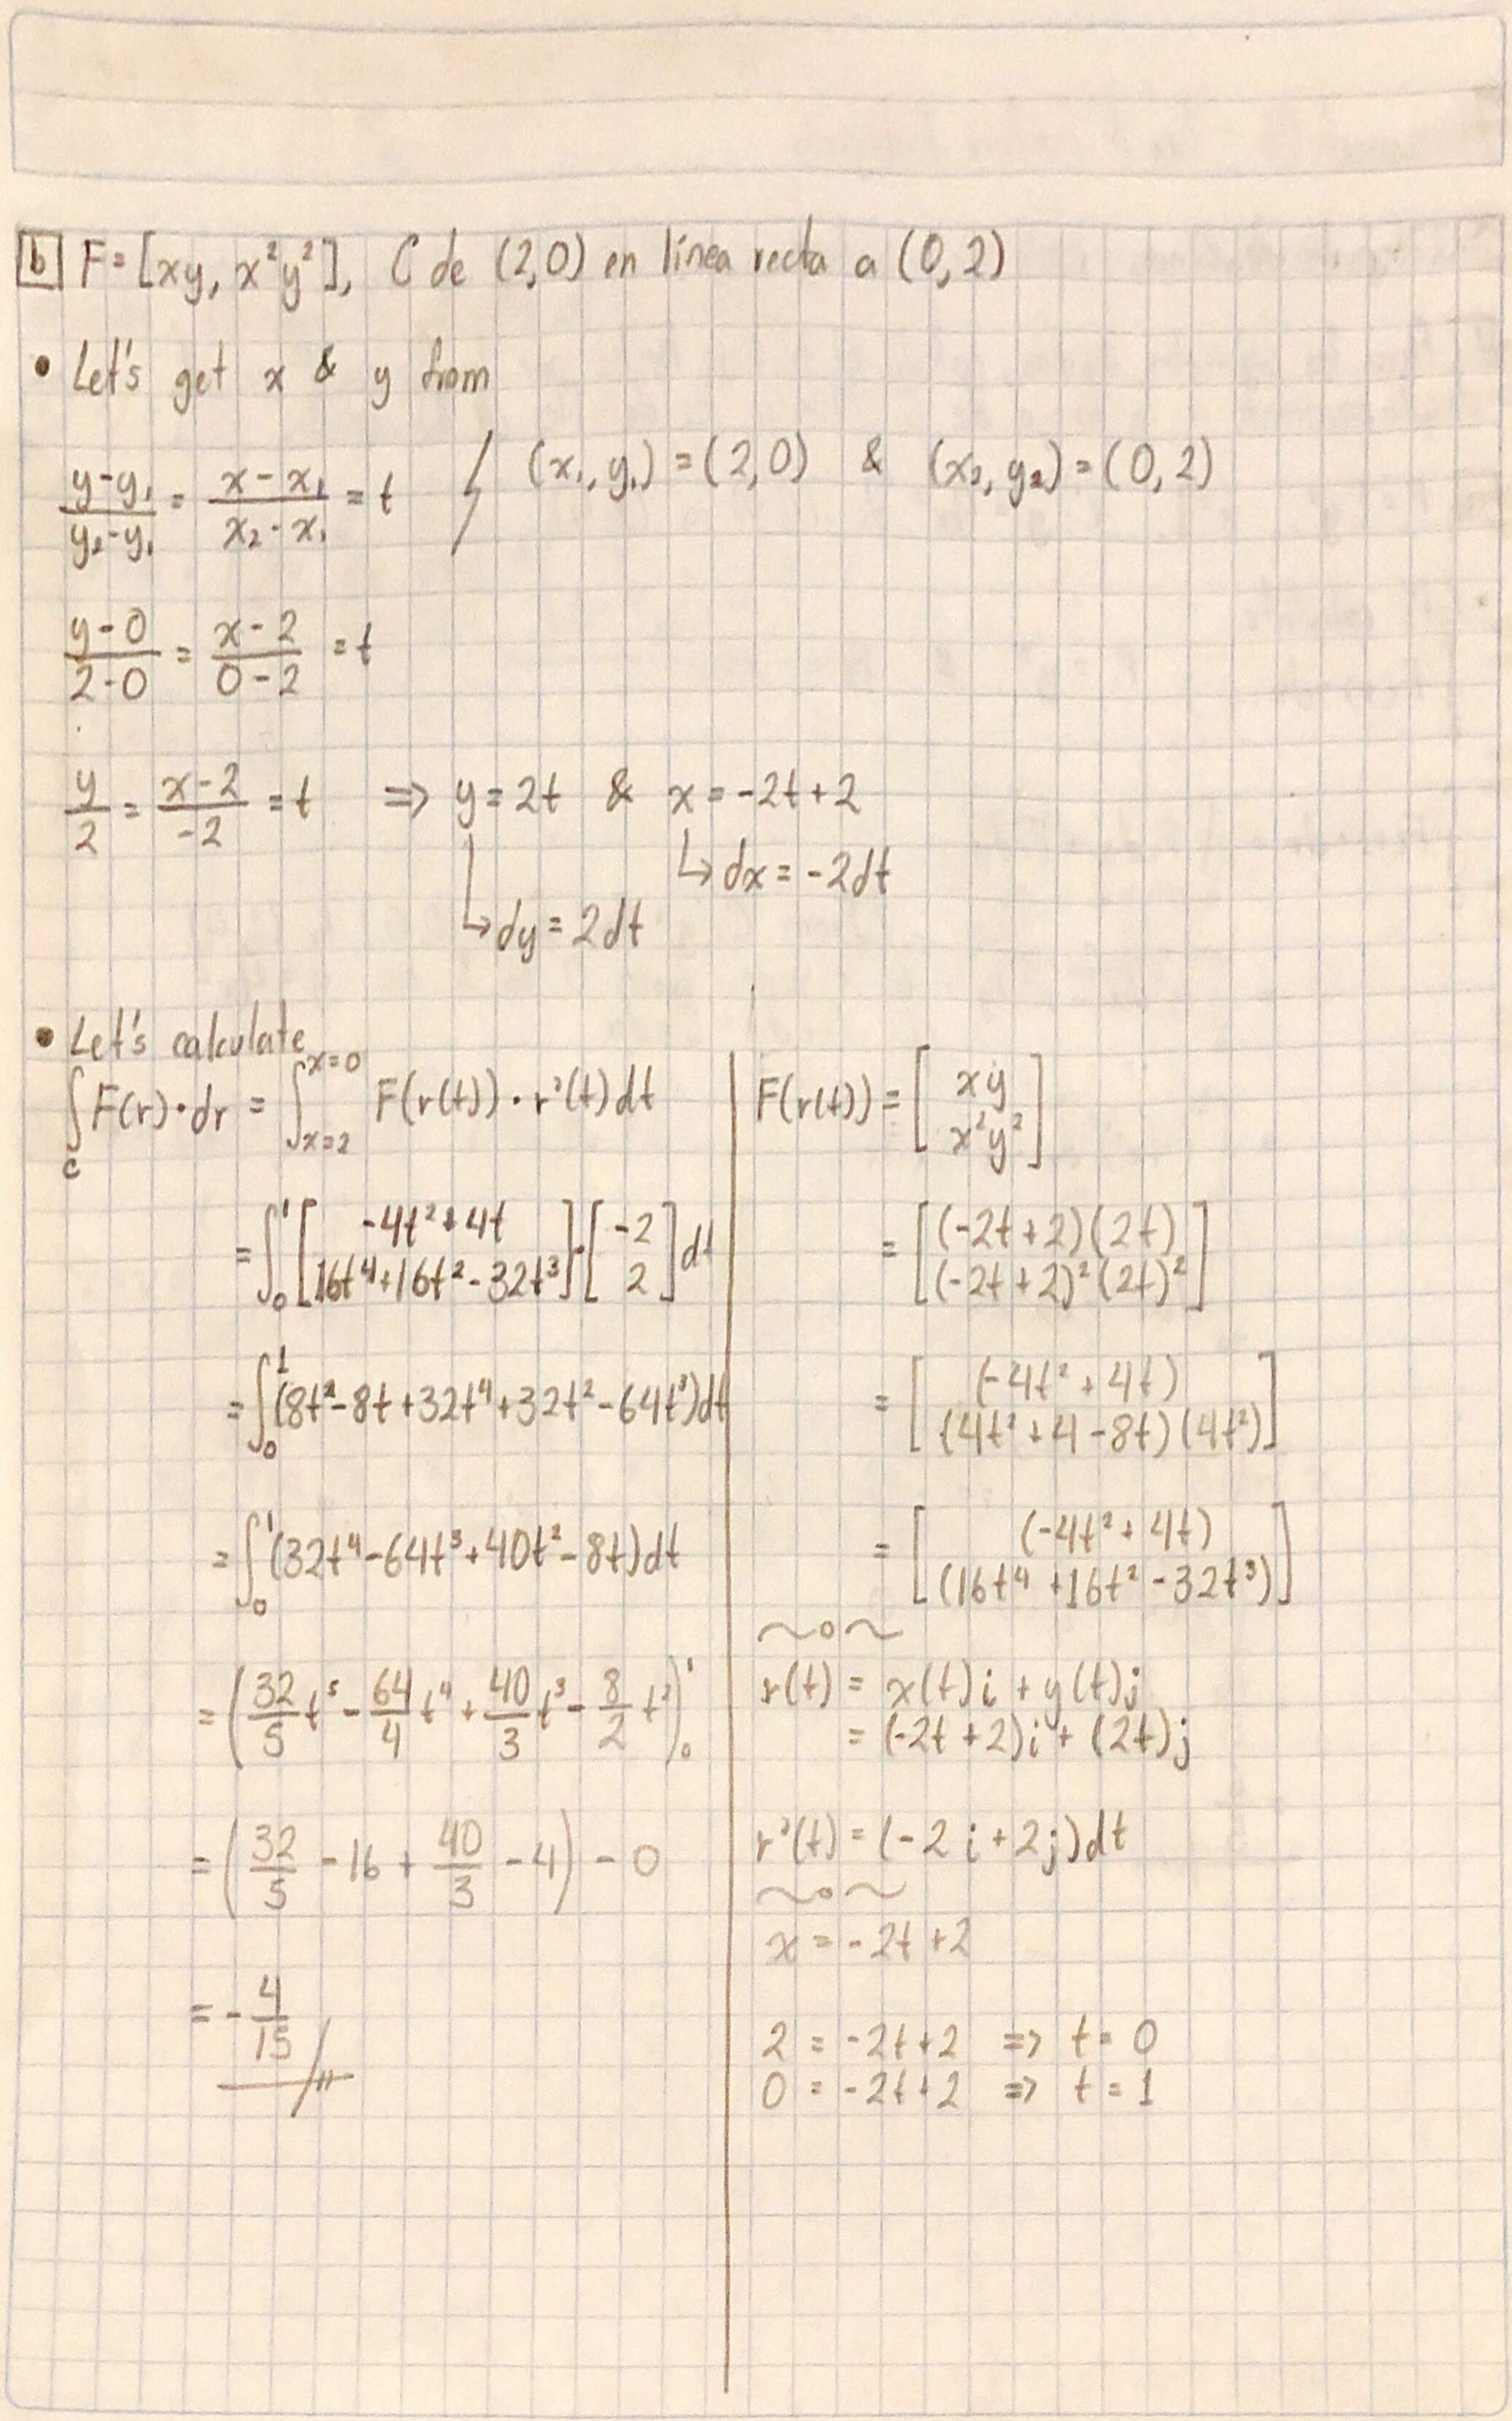 b F = [xy, x²y²], C de (2,0) en línea recta a (0,2)
• Let's get x & y from
(y-y₁)/(y₂-y₁) = (x-x₁)/(x₂-x₁) = t / (x₁,y₁) = (2,0) & (x₂,y₂) = (0,2)
(y-0)/(2-0) = (x-2)/(0-2) = t
y/2 = (x-2)/-2 = t ⇒ y = 2t & x = -2t+2
↳ dx = -2dt
↳ dy = 2dt
• Let's calculate
∫_C F(r)·dr = ∫_{x=2}^{x=0} F(r(t))·r'(t)dt
= ∫₀¹ [-4t²+4t; 16t⁴+16t²-32t³]·[-2; 2]dt
= ∫₀¹ (8t²-8t+32t⁴+32t²-64t³)dt
= ∫₀¹ (32t⁴-64t³+40t²-8t)dt
= (32/5 t⁵ - 64/4 t⁴ + 40/3 t³ - 8/2 t²)₀¹
= (32/5 - 16 + 40/3 - 4) - 0
= -4/15 //
F(r(t)) = [xy; x²y²]
= [(-2t+2)(2t); (-2t+2)²(2t)²]
= [(-4t²+4t); (4t²+4-8t)(4t²)]
= [(-4t²+4t); (16t⁴+16t²-32t³)]
~o~
r(t) = x(t)i + y(t)j
= (-2t+2)i + (2t)j
r'(t) = (-2i+2j)dt
~o~
x = -2t+2
2 = -2t+2 ⇒ t = 0
0 = -2t+2 ⇒ t = 1